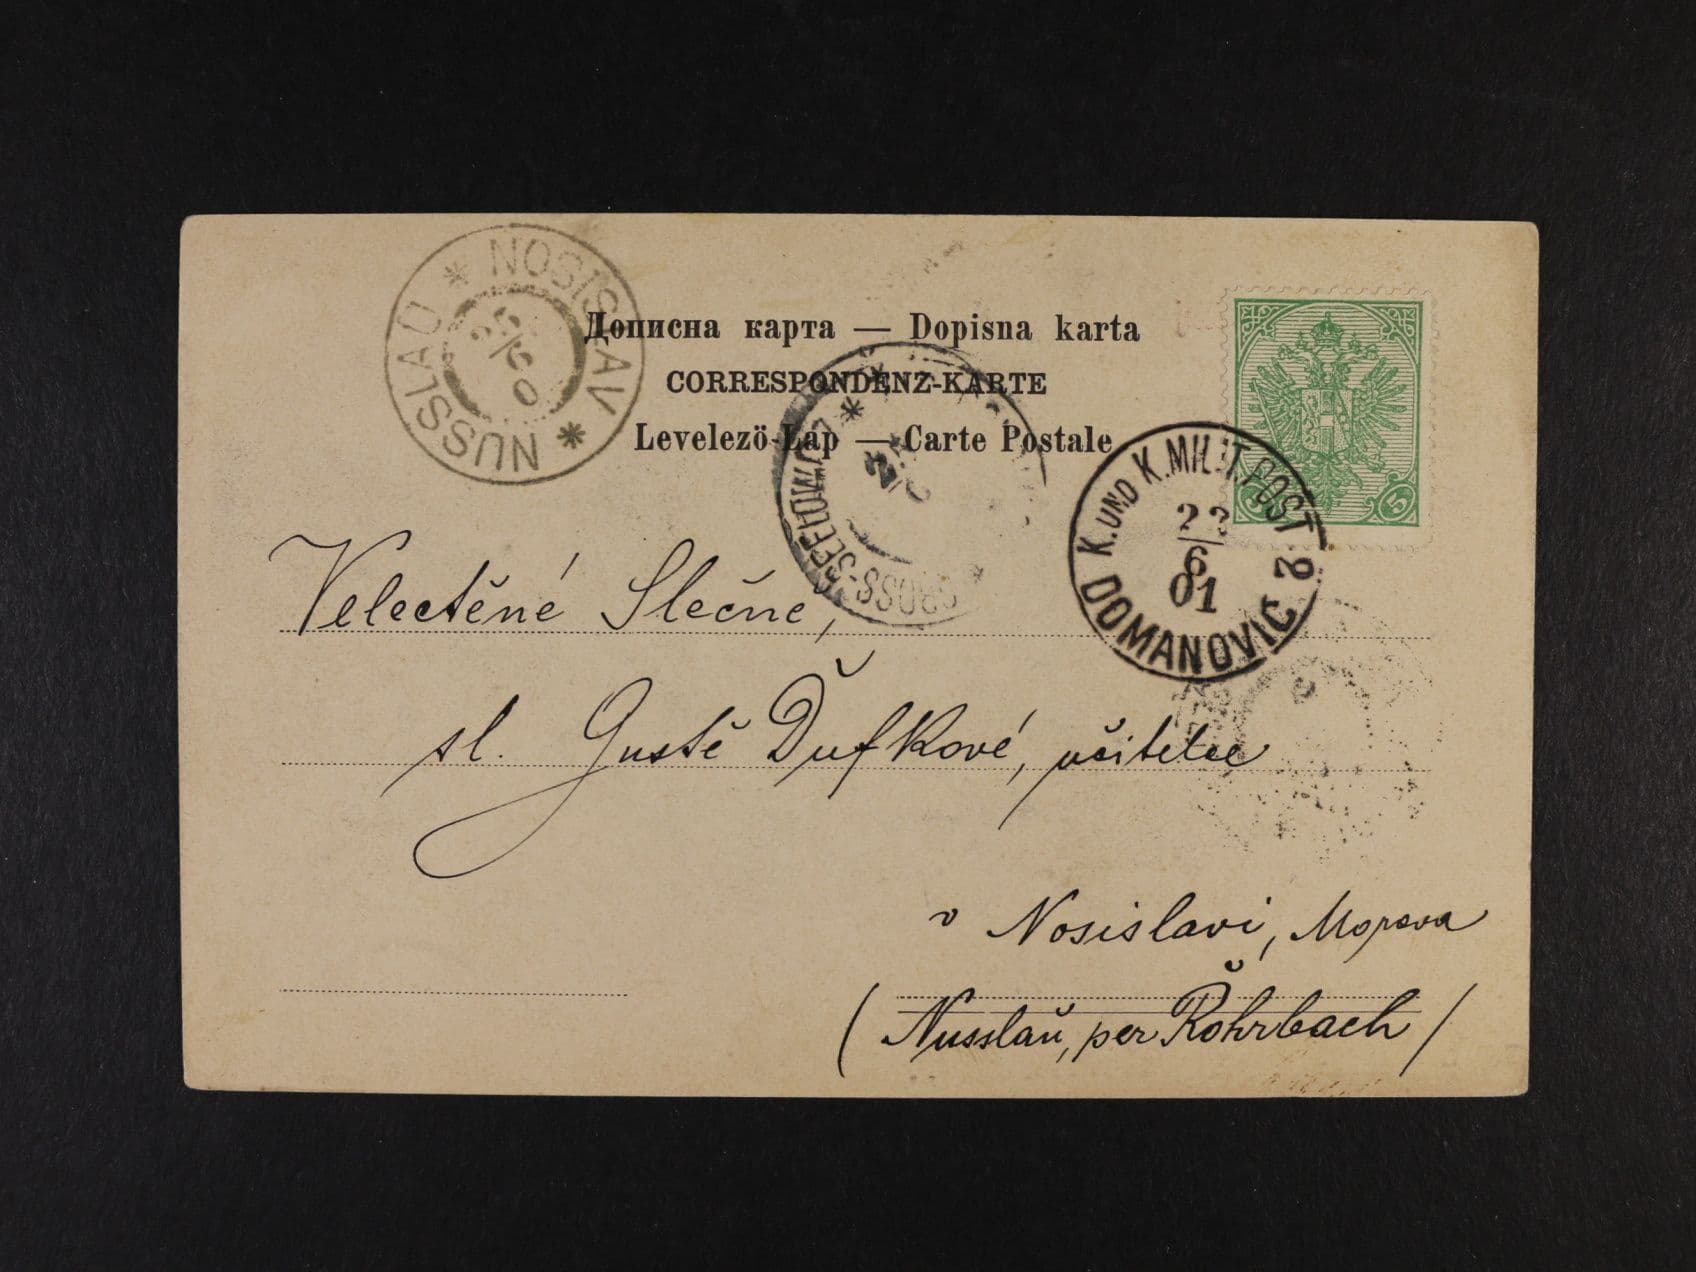 NOSISLAV * NUSSLAU *
Дописна карта — Dopisna karta
CORRESPONDENZ-KARTE
Levelezö-Lap — Carte Postale
GROSS-SEELOWITZ *
5
K. UND K. MILIT. POST
23
6
01
DOMANOVIC
Velectěné Slečne,
sl. Gustě Ďufkové, učitelce
v Nosislavi, Morava
(Nusslaŭ, per Řohrbach)